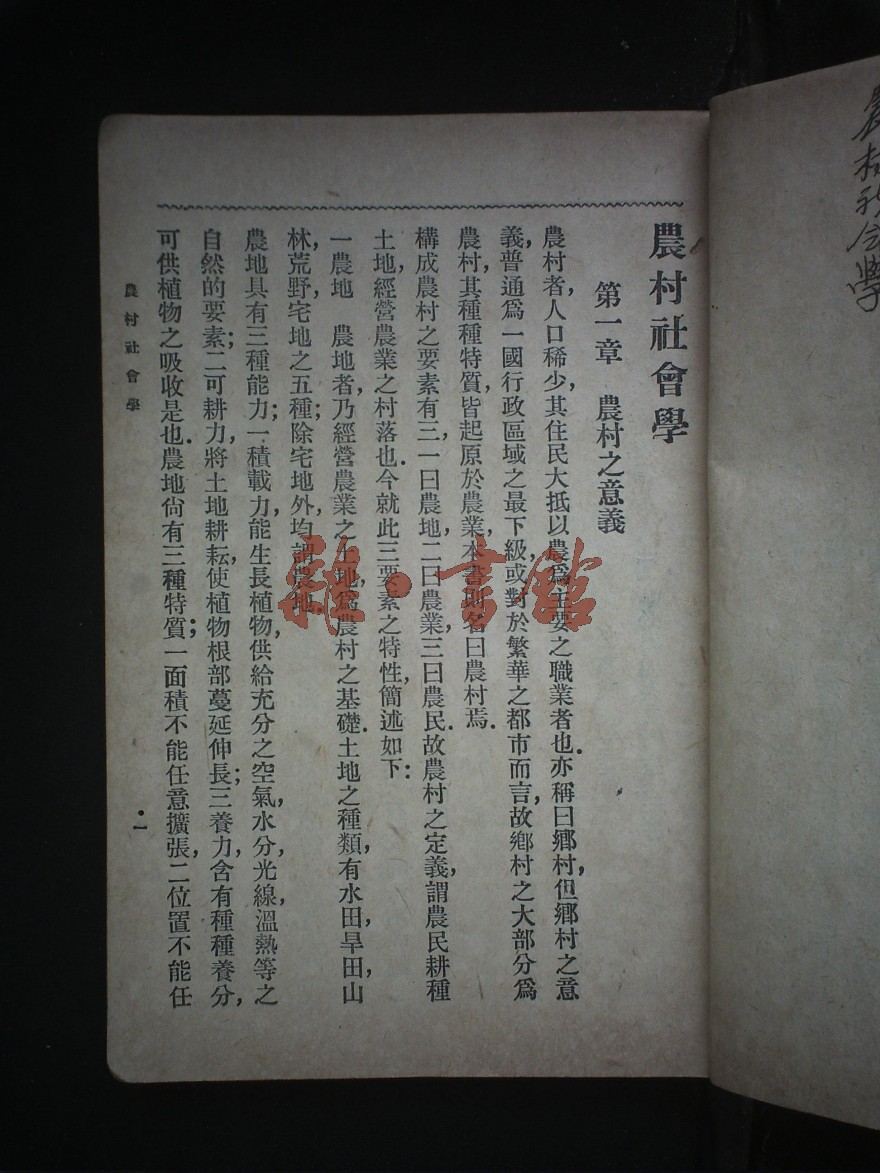 農村社會學
農村社會學
第一章　農村之意義
農村者，人口稀少，其住民大抵以農爲主要之職業者也．亦稱曰鄉村，但鄉村之意
義，普通爲一國行政區域之最下級，或對於繁華之都市而言，故鄉村之大部分爲
農村，其種種特質，皆起原於農業，本書則名曰農村焉．
構成農村之要素有三，一曰農地，二曰農業，三曰農民．故農村之定義，謂農民耕種
土地，經營農業之村落也．今就此三要素之特性，簡述如下：
一農地　農地者，乃經營農業之土地，爲農村之基礎．土地之種類，有水田，旱田，山
林，荒野，宅地之五種；除宅地外，均謂農地．
農地具有三種能力；一積載力，能生長植物，供給充分之空氣，水分，光線，溫熱等之
自然的要素；二可耕力，將土地耕耘，使植物根部蔓延伸長；三養力，含有種種養分，
可供植物之吸收是也．農地尙有三種特質；一面積不能任意擴張，二位置不能任
農村社會學
一
雜·書館